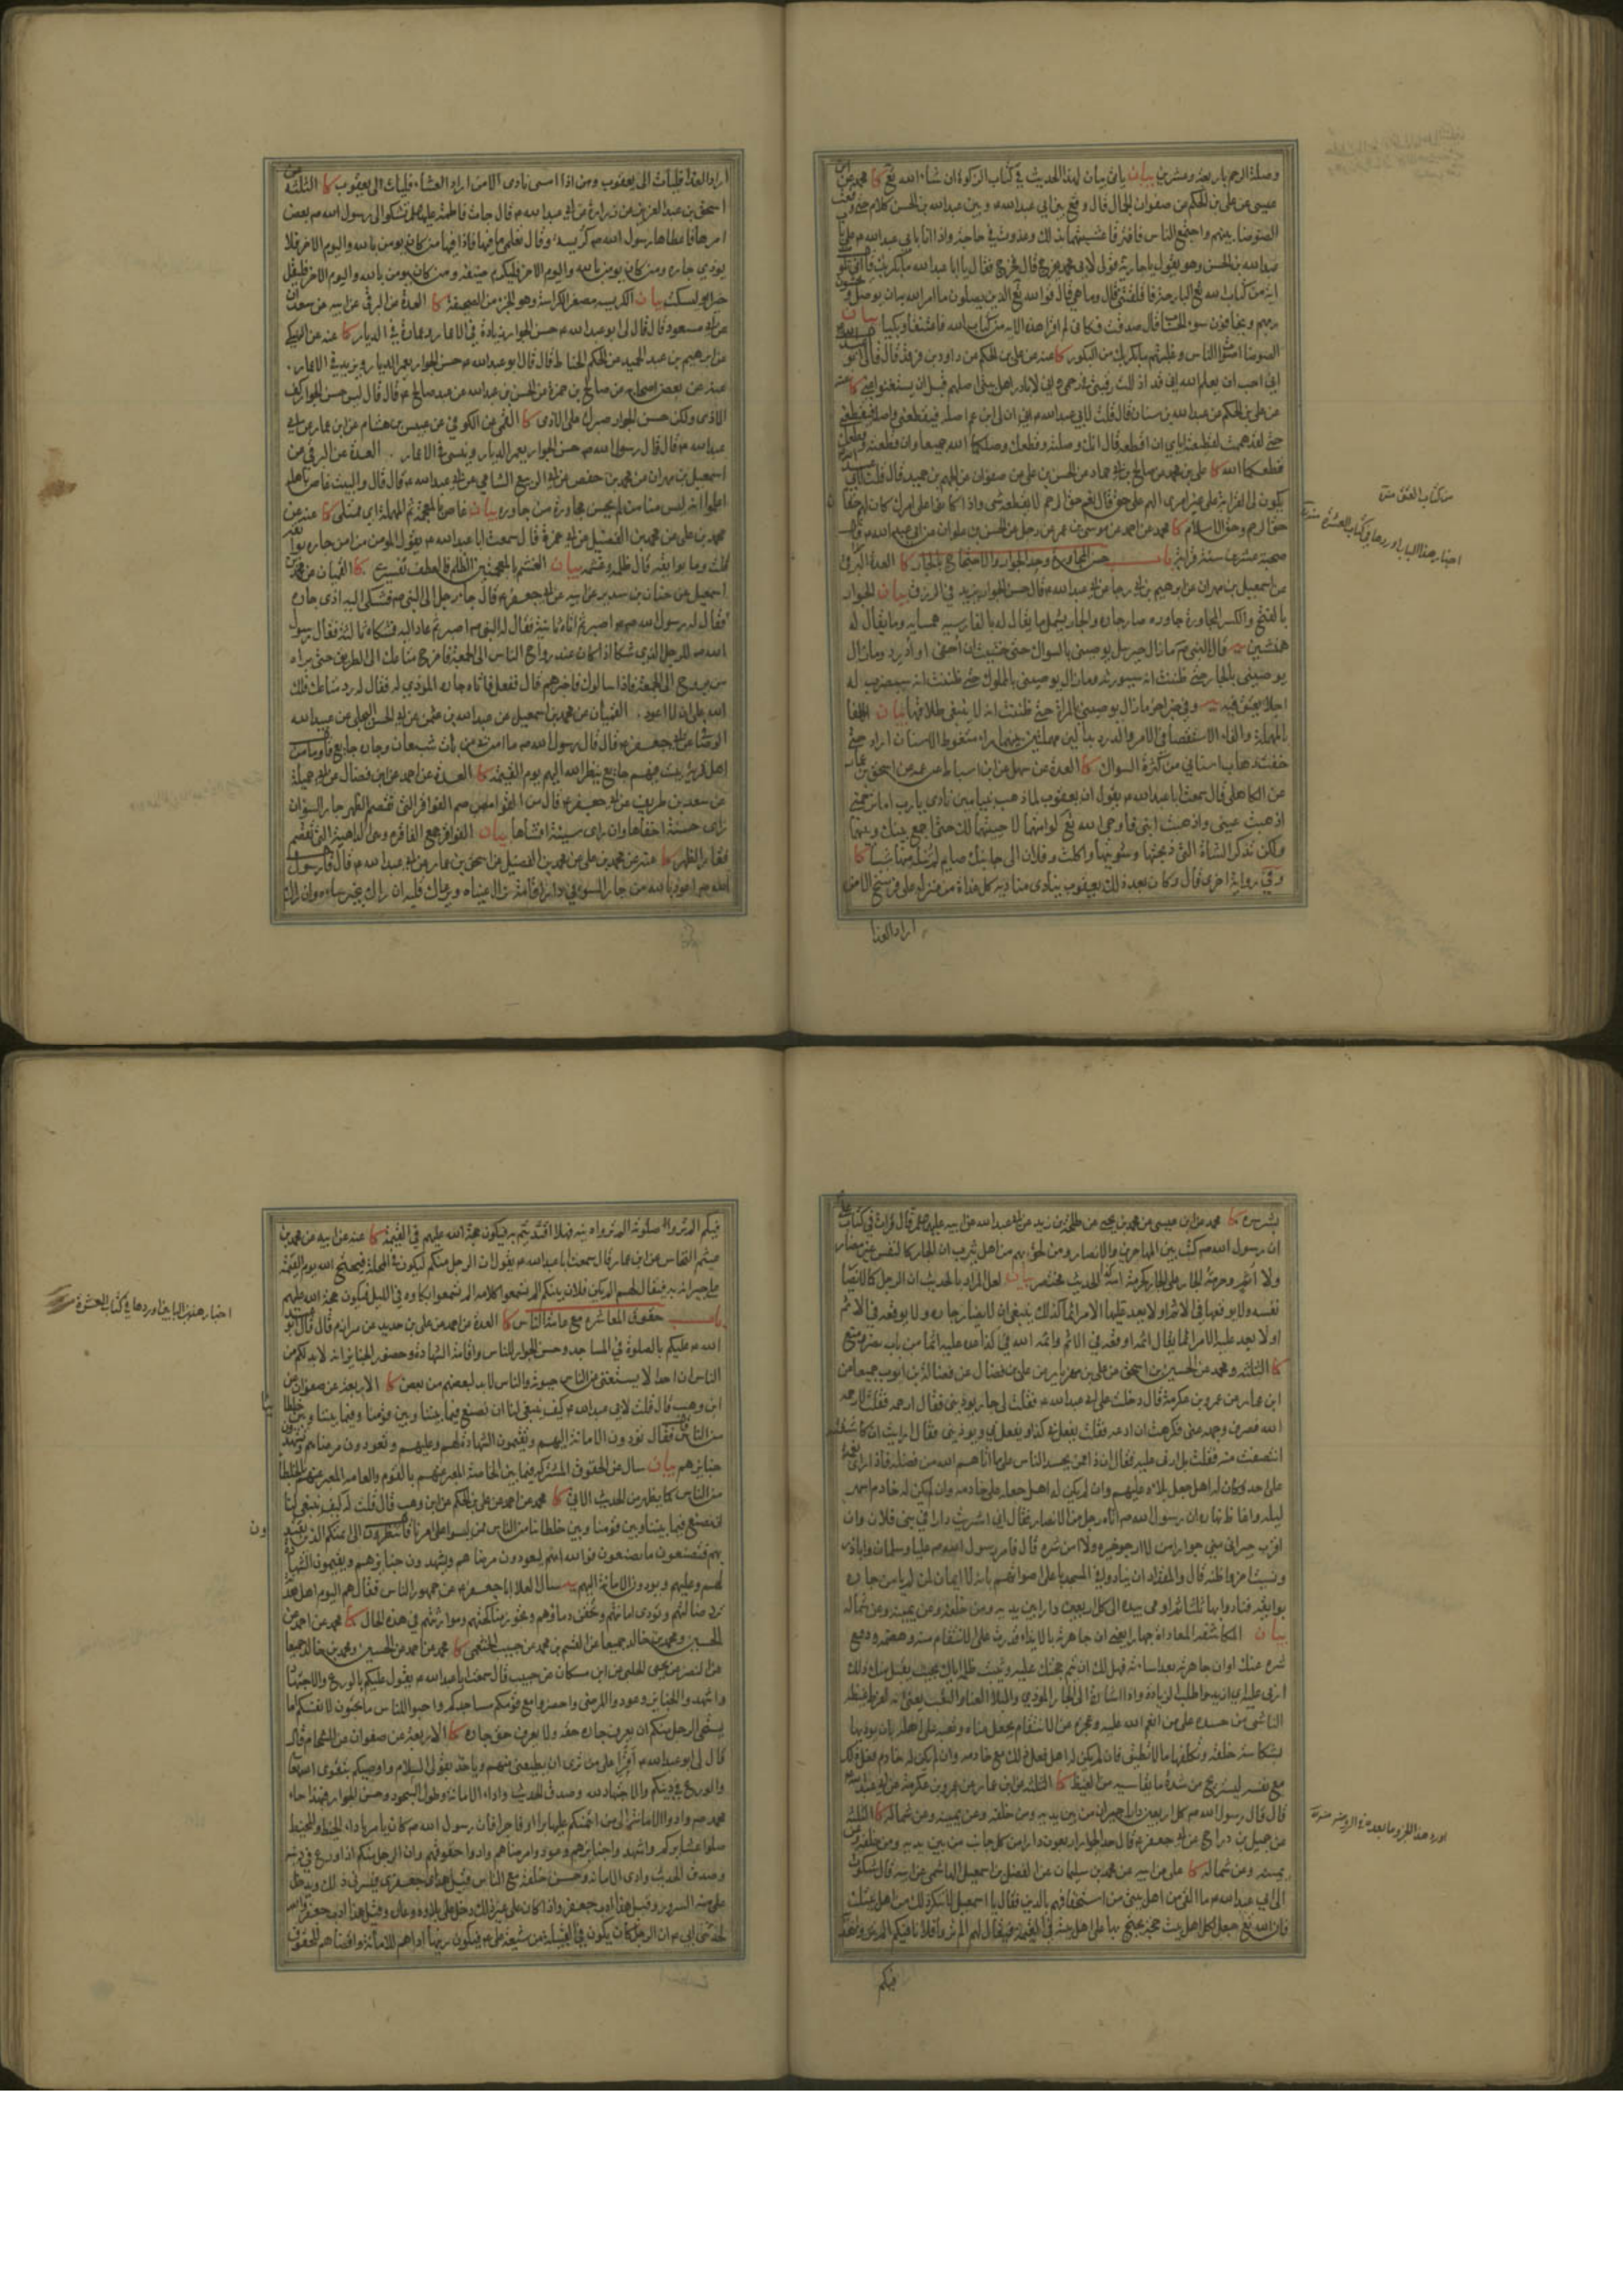 وصلة الرحم باربعة وعشرين بيان ياتي بيان لهذا الحديث في كتاب الزكوة ان شاء الله تع كا محمد عن ابن
عيسى عن علي بن الحكم عن صفوان الجمال قال وقع بين ابي عبدالله م وبين عبدالله بن الحسن كلام حتى وقعت
الضوضاء بينهم واجتمع الناس فافترقا عشيتهما بذلك وغدوت في حاجة واذا انا بابي عبدالله م على باب
عبدالله بن الحسن وهو يقول يا جارية قولي لابي محمد يخرج قال فخرج فقال يا ابا عبدالله ما بكر بك قال اني تلوت
اية من كتاب الله تع البارحة فاقلقتني قال وما هي قال قول الله تع الذين يصلون ما امر الله به ان يوصل و يخشون
ربهم ويخافون سوء الحساب قال صدقت فكاني لم اقرا هذه الاية من كتاب الله فاعتنقا وبكيا بيان
الضوضا اصوات الناس وغلبتهم ما بكر بك من البكور كا عنه عن علي بن الحكم عن داود بن فرقد قال قال لي ابو عبدالله
اني احب ان يعلم الله اني قد اذللت رقبتي في رحمي و اني لابادر اهل بيتي اصلهم قبل ان يستغنوا عني كا عنه
عن علي بن الحكم عن عبدالله بن سنان قال قلت لابي عبدالله م ان لي ابن عم اصله فيقطعني واصله فيقطعني
حتى لقد هممت لقطيعته اياي ان اقطعه قال انك اذا وصلته وقطعك وصلكما الله جميعا وان قطعته وقطعك
قطعكما الله كا علي بن محمد عن صالح بن ابي حماد عن الحسن بن علي عن صفوان عن الجهم بن حميد قال قلت لابي عبدالله
يكون لي القرابة على غير امري الهم علي حق قال نعم حق الرحم لا يقطعه شي واذا كانوا على امرك كان لهم حقان
حق الرحم وحق الاسلام كا محمد عن احمد عن موسى بن عمر عن رجل عن الحسن بن علوان عن ابي عبدالله م قال
صحبة عشرين سنة قرابة باب حسن المجاورة وحد الجوار والاحتجاج بالجار كا العدة عن البرقي
عن اسمعيل بن مهران عن ابرهيم بن ابي رجا عن ابي عبدالله م قال حسن الجوار يزيد في الرزق بيان الجوار
بالفتح والكسر المجاورة جاوره صار جاره والجار يشمل ما يقال له بالفارسية همسايه وما يقال له
همنشين يه قال النبي ص ما زال جبرئيل يوصيني بالسواك حتى خشيت ان احفى او ادرد وما زال
يوصيني بالجار حتى ظننت انه سيورثه وما زال يوصيني بالمملوك حتى ظننت انه سيضرب له
اجلا يعتق فيه يه وفي خبر اخر ما زال يوصيني بالمراة حتى ظننت انه لا ينبغي طلاقها بيان الحفا
بالمهملة والفاء الاستقصا في الامر والدرد بدالين مهملتين بينهما راء سقوط الاسنان اراد حتى
خفت ذهاب اسناني من كثرة السواك كا العدة عن سهل عن ابن اسباط عن عمه عن اسحق بن عمار
عن الكاهلي قال سمعت ابا عبدالله م يقول ان يعقوب لما ذهب بنيامين نادى يا رب اما ترحمني
اذهبت عيني واذهبت ابني فاوحى الله تع لو امتهما لاحييتهما لك حتى اجمع بينك وبينهما
ولكن تذكر الشاة التي ذبحتها وشويتها واكلت وفلان الى جانبك صايم لم تنله منها شيئا كا
وفي رواية اخرى قال وكان بعد ذلك يعقوب ينادي مناديه كل غداة من منزله على فرسخ الا من
اراد الغدا
من كتاب العتق منه
اخبار هذا الباب اوردها في كتاب العشرة منه
اراد الغدا فليات الى يعقوب ومن اذا امسى نادى الا من اراد العشاء فليات الى يعقوب كا الثلثة عن
اسحق بن عبد العزيز عن زرارة عن ابي عبدالله م قال جات فاطمة عليها السلام تشكو الى رسول الله ص بعض
امرها فاعطاها رسول الله ص كريسة وقال تعلمي ما فيها فاذا فيها من كان يومن بالله واليوم الاخر فلا
يوذي جاره ومن كان يومن بالله واليوم الاخر فليكرم ضيفه ومن كان يومن بالله واليوم الاخر فليقل
خيرا او ليسكت بيان الكريسه مصغر الكراسة وهو الجزء من الصحيفة كا العدة عن البرقي عن ابيه عن سعدان
عن ابي مسعود قال قال لي ابو عبدالله م حسن الجوار زيادة في الاعمار وعمارة في الديار كا عنه عن النهيكي
عن ابرهيم بن عبد الحميد عن الحكم الخياط قال قال ابو عبدالله م حسن الجوار يعمر الديار ويزيد في الاعمار
عنه عن بعض اصحابه عن صالح بن حمزة عن الحسن بن عبدالله عن عبد صالح م قال قال ليس حسن الجوار كف
الاذى ولكن حسن الجوار صبرك على الاذى كا القمي عن الكوفي عن عبيس بن هشام عن ابن عمار عن ابي
عبدالله م قال قال رسول الله ص حسن الجوار يعمر الديار وينسي في الاعمار العدة عن البرقي عن
اسمعيل بن مهران عن محمد بن حفص عن ابي الربيع الشامي عن ابي عبدالله م قال قال والبيت غاص باهله
اعلموا انه ليس منا من لم يحسن مجاورة من جاوره بيان غاص بالمعجمة ثم المهملة اي ممتلي كا عنه عن
محمد بن علي عن محمد بن الفضيل عن ابي حمزة قال سمعت ابا عبدالله م يقول المومن من امن جاره بوايقه
قلت وما بوايقه قال ظلمه وغشمه بيان الغشم بالمعجمتين الظلم فالعطف تفسيري كا القميان عن محمد بن
اسمعيل عن حنان بن سدير عن ابيه عن ابي جعفر م قال جاء رجل الى النبي ص فشكى اليه اذى جاره
فقال له رسول الله ص اصبر ثم اتاه ثانية فقال له النبي ص اصبر ثم عاد اليه فشكاه ثالثة فقال رسول
الله ص للرجل الذي شكا اذا كان عند رواح الناس الى الجمعة فاخرج متاعك الى الطريق حتى يراه
من يروح الى الجمعة فاذا سالوك فاخبرهم قال ففعل فاتاه جاره الموذي له فقال له رد متاعك فلك
الله علي ان لا اعود القميان عن محمد بن اسمعيل عن عبدالله بن عثمن عن ابي الحسن البجلي عن عبيدالله
الوصافي عن ابي جعفر م قال قال رسول الله ص ما امن بي من بات شبعان وجاره جايع قال وما من
اهل قرية يبيت فيهم جايع ينظر الله اليهم يوم القيمة كا العدة عن احمد عن ابن فضال عن ابي جميلة
عن سعد بن طريف عن ابي جعفر م قال من القواصم الفواقر التي تقصم الظهر جار السوء ان
راى حسنة اخفاها وان راى سيئة افشاها بيان الفواقر جمع الفاقرة وهي الداهية التي تقصم
فقار الظهر كا عنه عن محمد بن علي عن محمد بن الفضيل عن اسحق بن عمار عن ابي عبدالله م قال قال رسول
الله ص اعوذ بالله من جار السوء في دار اقامة تراك عيناه ويرعاك قلبه ان راك بخير ساءه وان راك
بشر سره كا محمد عن ابن عيسى عن محمد بن يحيى عن طلحة بن زيد عن ابي عبدالله عن ابيه عليهما السلام قال قرات في كتاب علي
ان رسول الله ص كتب بين المهاجرين والانصار ومن لحق بهم من اهل يثرب ان الجار كالنفس غير مضار
ولا اثم وحرمة الجار على الجار كحرمة امه الحديث مختصر بيان لعل المراد بالحديث ان الرجل كما لا يضار
نفسه ولا يوقعها في الاثم او لا يعد عليها الامر اثما كذلك ينبغي ان لا يضار جاره ولا يوقعه في الاثم
او لا يعد عليه الامر اثما يقال اثمه اوقعه في الاثم واثمه الله في كذا عده عليه اثما من باب نصر ومنع
كا الثلثة ومحمد عن الحسين بن اسحق عن علي بن مهزيار عن علي بن فضال عن فضالة بن ايوب جميعا عن
ابن عمار عن عمرو بن عكرمة قال دخلت على ابي عبدالله م فقلت لي جار يوذيني فقال ارحمه فقلت لا رحمه
الله فصرف وجهه عني فكرهت ان ادعه فقلت يفعل بي كذا ويفعل بي ويوذيني فقال ارايت ان كاشفته
انتصفت منه فقلت بلى اربي عليه فقال ان ذا ممن يحسد الناس على ما اتاهم الله من فضله فاذا راى نعمة
على احد فكان له اهل جعل بلاءه عليهم وان لم يكن له اهل جعله على خادمه وان لم يكن له خادم اسهر
ليله واغاظ نهاره ان رسول الله ص اتاه رجل من الانصار فقال اني اشتريت دارا في بني فلان وان
اقرب جيراني مني جوارا من لا ارجو خيره ولا امن شره قال فامر رسول الله ص عليا وسلمان واباذر
ونسيت اخر واظنه قال والمقداد ان ينادوا في المسجد باعلى اصواتهم بانه لا ايمان لمن لم يامن جاره
بوايقه فنادوا بها ثلثا ثم اومى بيده الى كل اربعين دارا بين يديه ومن خلفه وعن يمينه وعن شماله
بيان المكاشفة المعاداة جهارا يعني ان جاهرته بالايذاء قدرت على الانتقام منه وهضمه ودفع
شره عنك
كا الثلثة عن ابن عمار عن عمرو بن عكرمة عن ابي عبدالله
قال قال رسول الله ص كل اربعين دارا جيران من بين يديه ومن خلفه وعن يمينه وعن شماله كا الثلثة
عن جميل بن دراج عن ابي جعفر م قال حد الجوار اربعون دارا من كل جانب من بين يديه ومن خلفه وعن
يمينه وعن شماله كا علي عن ابيه عن محمد بن سليمان عن الفضل بن اسمعيل الهاشمي عن ابيه قال شكوت
الى ابي عبدالله م ما القى من اهل بيتي من استخفافهم بالدين فقال يا اسمعيل لا تنكر ذلك من اهل بيتك
فان الله تع جعل لكل اهل بيت حجة يحتج بها على اهل بيته في القيمة فيقال لهم الم تروا فلانا فيكم الم تروا هديه
فيكم
فيكم الم تروا صلوته الم تروا دينه فهلا اقتديتم به فيكون حجة الله عليهم في القيمة كا عنه عن ابيه عن محمد بن
عيثم النخاس عن ابن عمار قال سمعت ابا عبدالله م يقول ان الرجل منكم ليكون في المحلة فيحتج الله يوم القيمة
على جيرانه به فيقال لهم الم يكن فلان بينكم الم تسمعوا كلامه الم تسمعوا بكاوه في الليل فيكون حجة الله عليهم
باب حقوق المعاشرة مع عامة الناس كا العدة عن احمد عن علي بن حديد عن مرازم قال قال ابو عبد
الله م عليكم بالصلوة في المساجد وحسن الجوار للناس واقامة الشهادة وحضور الجنايز انه لا بد لكم من
الناس ان احدا لا يستغني من الناس حيوته والناس لا بد لبعضهم من بعض كا الاربعة عن صفوان عن
ابن وهب قال قلت لابي عبدالله م كيف ينبغي لنا ان نصنع فيما بيننا وبين قومنا وفيما بيننا وبين خلطائنا
من الناس فقال تؤدون الامانة اليهم وتقيمون الشهادة لهم وعليهم وتعودون مرضاهم وتشهدون
جنايزهم بيان سال عن الحقوق المشتركة فيما بين الخاصة المعبر عنهم بالقوم والعامه المعبر عنهم بالخلطا
من الناس كما يظهر من الحديث الاتي كا محمد عن احمد عن علي بن الحكم عن ابن وهب قال قلت له كيف ينبغي لنا
ان نصنع فيما بيننا وبين قومنا وبين خلطائنا من الناس ممن ليسوا على امرنا قال تنظرون الى ائمتكم الذين تقتدون
بهم فتصنعون ما يصنعون فوالله انهم ليعودون مرضاهم ويشهدون جنايزهم ويقيمون الشهادة
لهم وعليهم ويودون الامانة اليهم يه سال العلا ابا جعفر م عن جمهور الناس فقال هم اليوم اهل هدنة
ترد ضالتهم وتودى امانتهم وتحقن دماؤهم وتجوز مناكحتهم وموارثتهم في هذه الحال كا محمد عن احمد عن
الحسين ومحمد بن خالد جميعا عن القسم بن محمد عن حبيب الخثعمي كا محمد عن احمد عن الحسين ومحمد بن خالد جميعا
عن النضر عن يحيى الحلبي عن ابن مسكان عن حبيب قال سمعت ابا عبدالله م يقول عليكم بالورع والاجتهاد
واشهدوا الجنايز وعودوا المرضى واحضروا مع قومكم مساجدكم واحبوا للناس ما تحبون لانفسكم اما
يستحي الرجل منكم ان يعرف جاره حقه ولا يعرف حق جاره كا الاربعة عن صفوان عن الشحام قال
قال لي ابو عبدالله م اقرا على من ترى ان يطيعني منهم وياخذ بقولي السلام واوصيكم بتقوى الله تع
والورع في دينكم والاجتهاد لله وصدق الحديث واداء الامانة وطول السجود وحسن الجوار فبهذا جاء
محمد ص وادوا الامانة الى من ائتمنكم عليها برا او فاجرا فان رسول الله ص كان يامر باداء الخيط والمخيط
صلوا عشايركم واشهدوا جنايزهم وعودوا مرضاهم وادوا حقوقهم فان الرجل منكم اذا ورع في دينه
وصدق الحديث وادى الامانة وحسن خلقه مع الناس قيل هذا جعفري فيسرني ذلك ويدخل
علي منه السرور وقيل هذا ادب جعفر واذا كان على غير ذلك دخل علي بلاوه وعاره وقيل هذا ادب جعفر والله
لحدثني ابي م ان الرجل كان يكون في القبيلة من شيعة علي م فيكون زينها اداهم للامانة واقضاهم للحقوق
اخبار هذين البابين اوردها في كتاب العشرة منه